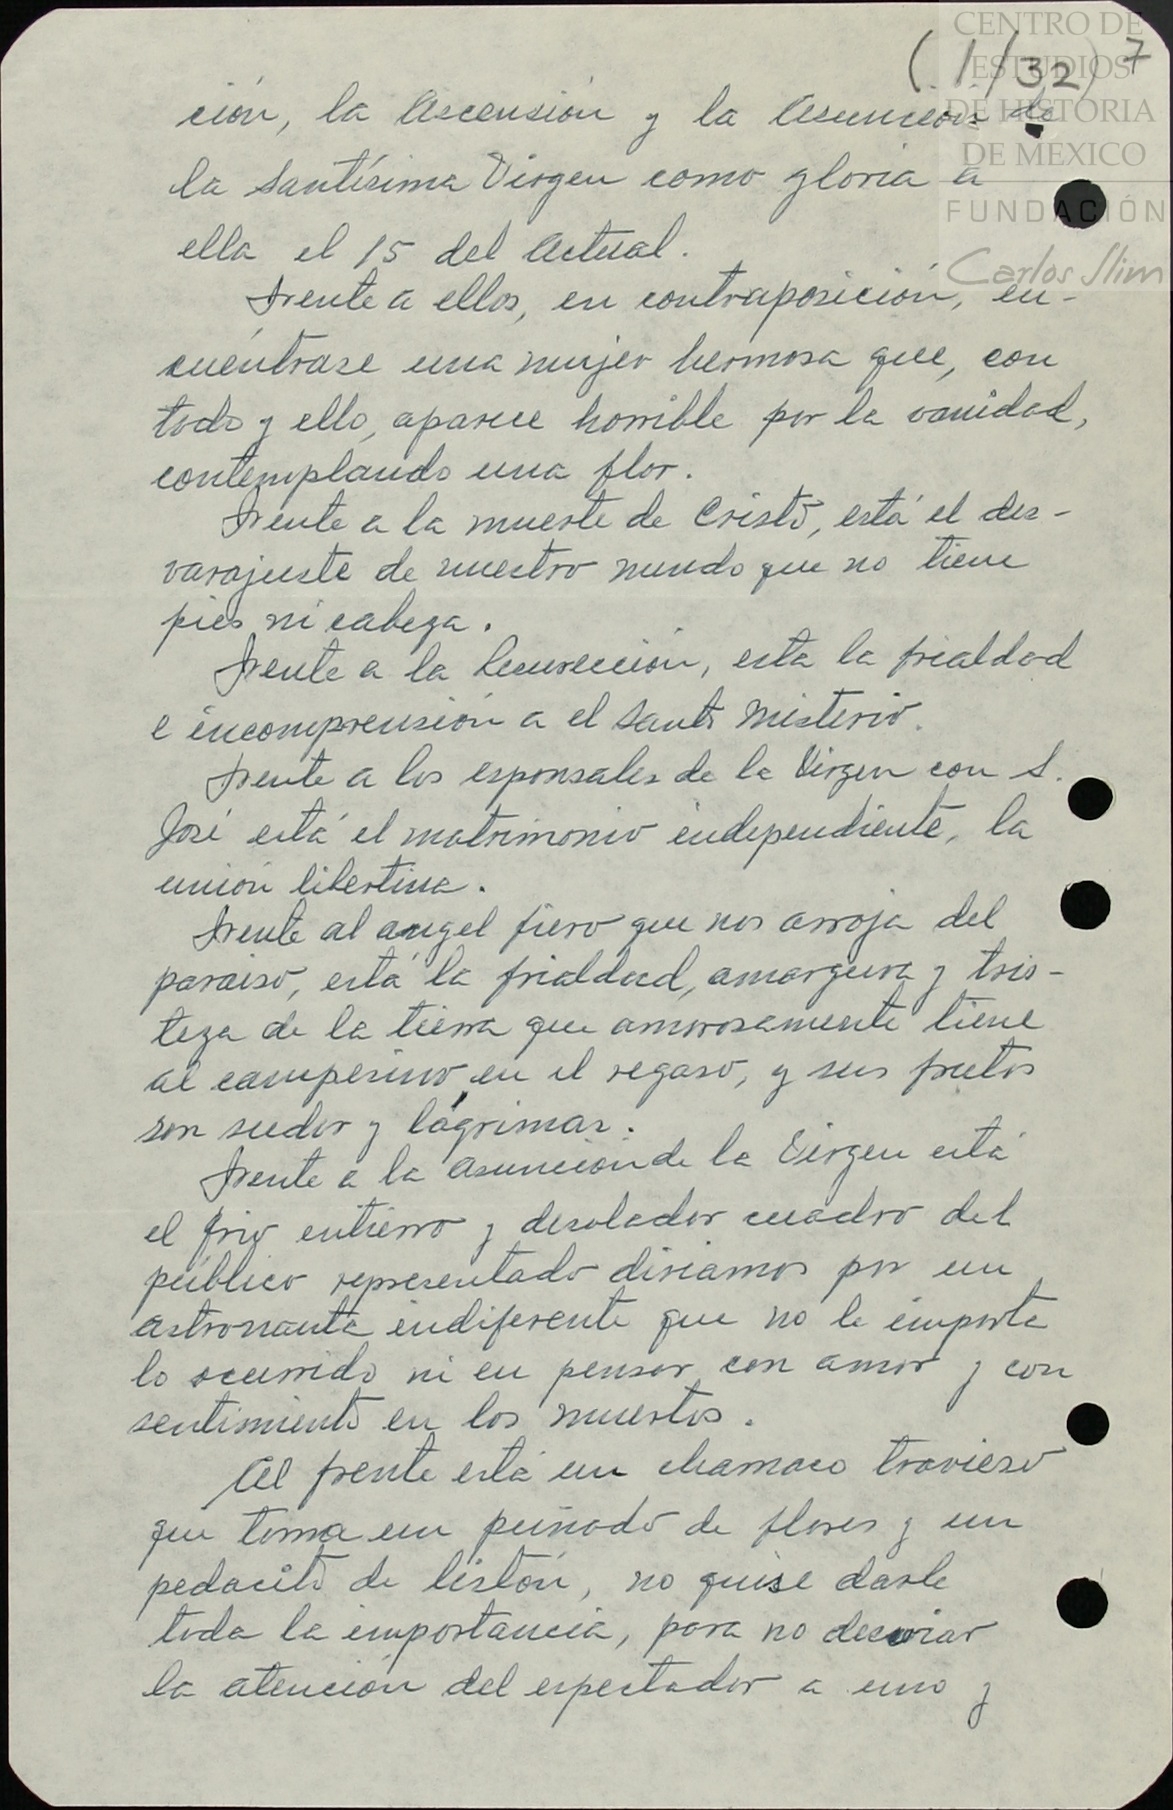 CENTRO DE
ESTUDIOS
DE HISTORIA
DE MEXICO
FUNDACIÓN
Carlos Slim
(1/32) 7
ción, la Ascensión y la Asunción de
la Santísima Virgen como gloria a
ella el 15 del Actual.
Frente a ellos, en contraposición, en-
cuéntrase una mujer hermosa que, con
todo y ello, aparece horrible por la vanidad,
contemplando una flor.
Frente a la muerte de Cristo, está el des-
varajuste de nuestro mundo que no tiene
pies ni cabeza.
Frente a la Resurección, esta la frialdad
e incomprensión a el Santo Misterio.
Frente a los esponsales de la Virgen con S.
José está el matrimonio independiente, la
unión libertina.
Frente al angel fiero que nos arroja del
paraiso, está la frialdad, amargura y tris-
teza de la tierra que amorosamente tiene
al campesino en el regaso, y sus frutos
son sudor y lágrimas.
Frente a la asunción de la Virgen está
el frio entierro y desolador cuadro del
público representado diriamos por un
astronauta indiferente que no le importa
lo ocurrido ni en pensar con amor y con
sentimiento en los muertos.
Al frente está un chamaco travieso
que toma un puñado de flores y un
pedacito de listón, no quise darle
toda la importancia, para no desviar
la atención del espectador a uno y